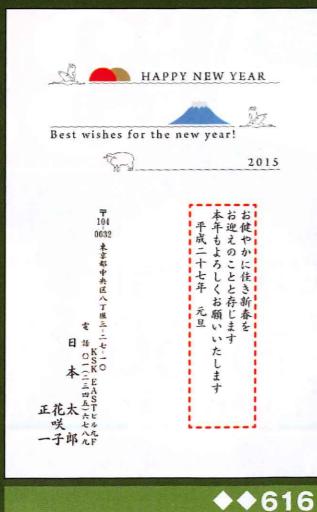 HAPPY NEW YEAR
Best wishes for the new year!
2015
お健やかに佳き新春を
お迎えのことと存じます
本年もよろしくお願いいたします
平成二十七年 元旦
〒104-0032 東京都中央区八丁堀三-二七-一〇
KSK EASTビル九F
電話〇一(二三四五)六七八九
日本太郎
花咲子
正一
◆◆616